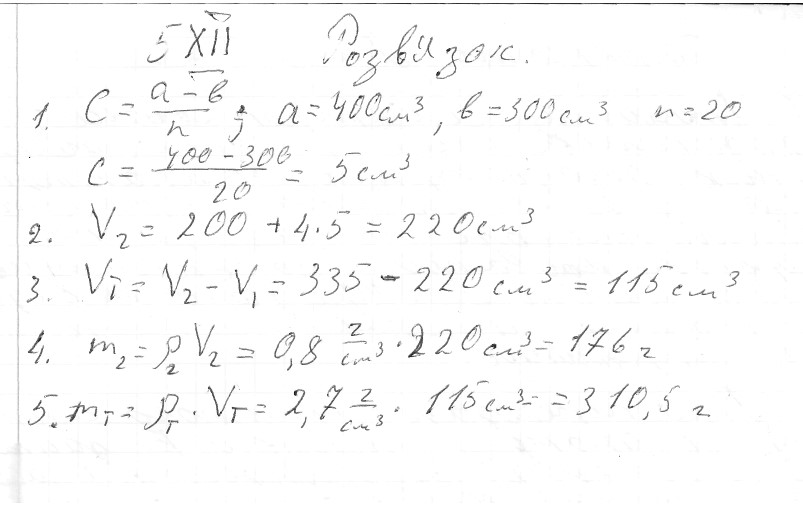 5 XII Розв'язок.
1. C = (a - в)/n ; a = 400 см³, в = 300 см³ n = 20
C = (400 - 300)/20 = 5 см³
2. V₂ = 200 + 4·5 = 220 см³
3. VТ = V₂ - V₁ = 335 - 220 см³ = 115 см³
4. m₂ = ρ₂ V₂ = 0,8 г/см³ · 220 см³ = 176 г
5. mТ = ρТ · VТ = 2,7 г/см³ · 115 см³ = = 310,5 г